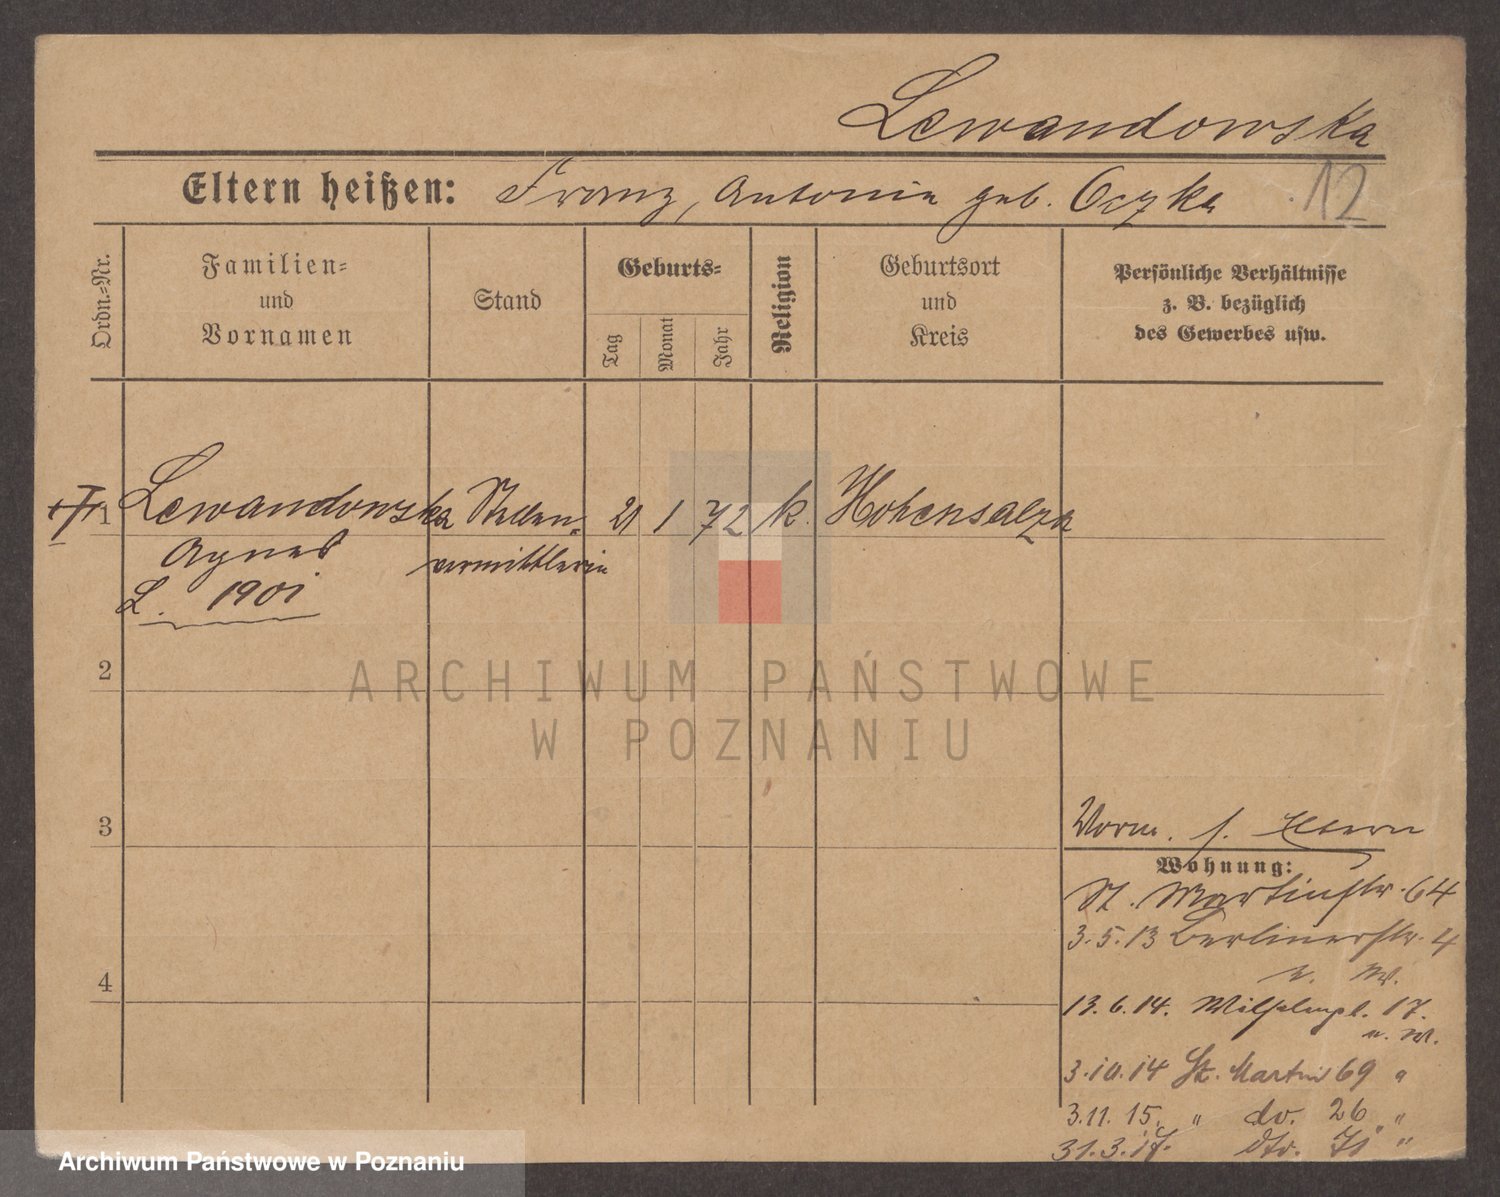 Lewandowska
Eltern heißen: Franz, Antonie geb. Oczka 12
Ordn.-Nr.
Familien-
und
Vornamen
Stand
Geburts-
Tag
Monat
Jahr
Religion
Geburtsort
und
Kreis
Persönliche Verhältnisse
z. B. bezüglich
des Gewerbes usw.
1 Lewandowska Stellen- 21 1 72 k. Hohensalza
Agnes vermittlerin
L. 1901
2
ARCHIWUM PAŃSTWOWE
W POZNANIU
3
Vorm. s.
Wohnung:
St. Martinstr. 64
3.5.13 Berlinerstr. 4
u. W.
4
13.6.14. Wilhelmpl. 17.
u. W.
3.10.14 St. Martin 69 "
3.11.15. " do. 26 "
31.3.17. dto. "
Archiwum Państwowe w Poznaniu